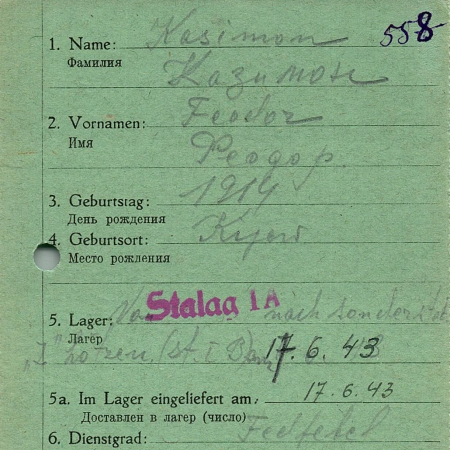 558
1. Name: Kasimon
Фамилия Казимон
2. Vornamen: Feodor
Имя Феодор.
3. Geburtstag: 1919
День рождения
4. Geburtsort: Kyew
Место рождения
Stalag IA
5. Lager: nach
Лагер 17.6.43
5a. Im Lager eingeliefert am: 17.6.43
Доставлен в лагер (число)
6. Dienstgrad: